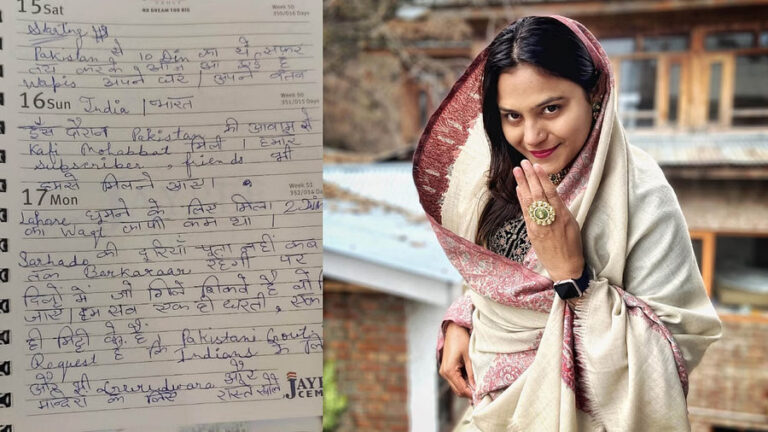 15 Sat
Week 50
350/016 Days
WE DREAM TOO BIG
Pakistan से 10 Din का ये सफर
तय करके आज आ चुके है
Wapis अपने घर / अपने वतन
16 Sun India / भारत
Week 50
351/015 Days
इस दौरान Pakistan की आवाम से
Kafi Mohabbat मिली । हमारे
subscriber, friends भी
हमसे मिलने आए ।
17 Mon
Week 51
352/014 Days
Lahore घुमने के लिए मिला 2 दिन
का Waqt काफी कम था ।
Sarhado की दुरियाँ पता नहीं कब
तक Barkaraar रहेगी पर
दिलों में जो गिले शिकवे है वो
जाए हम सब एक ही धरती, एक
ही मिट्टी के है
Request है कि Pakistani
Indians के लिए
और भी Gurudwara और
मन्दिरों के लिए रास्ते खोले
CEM